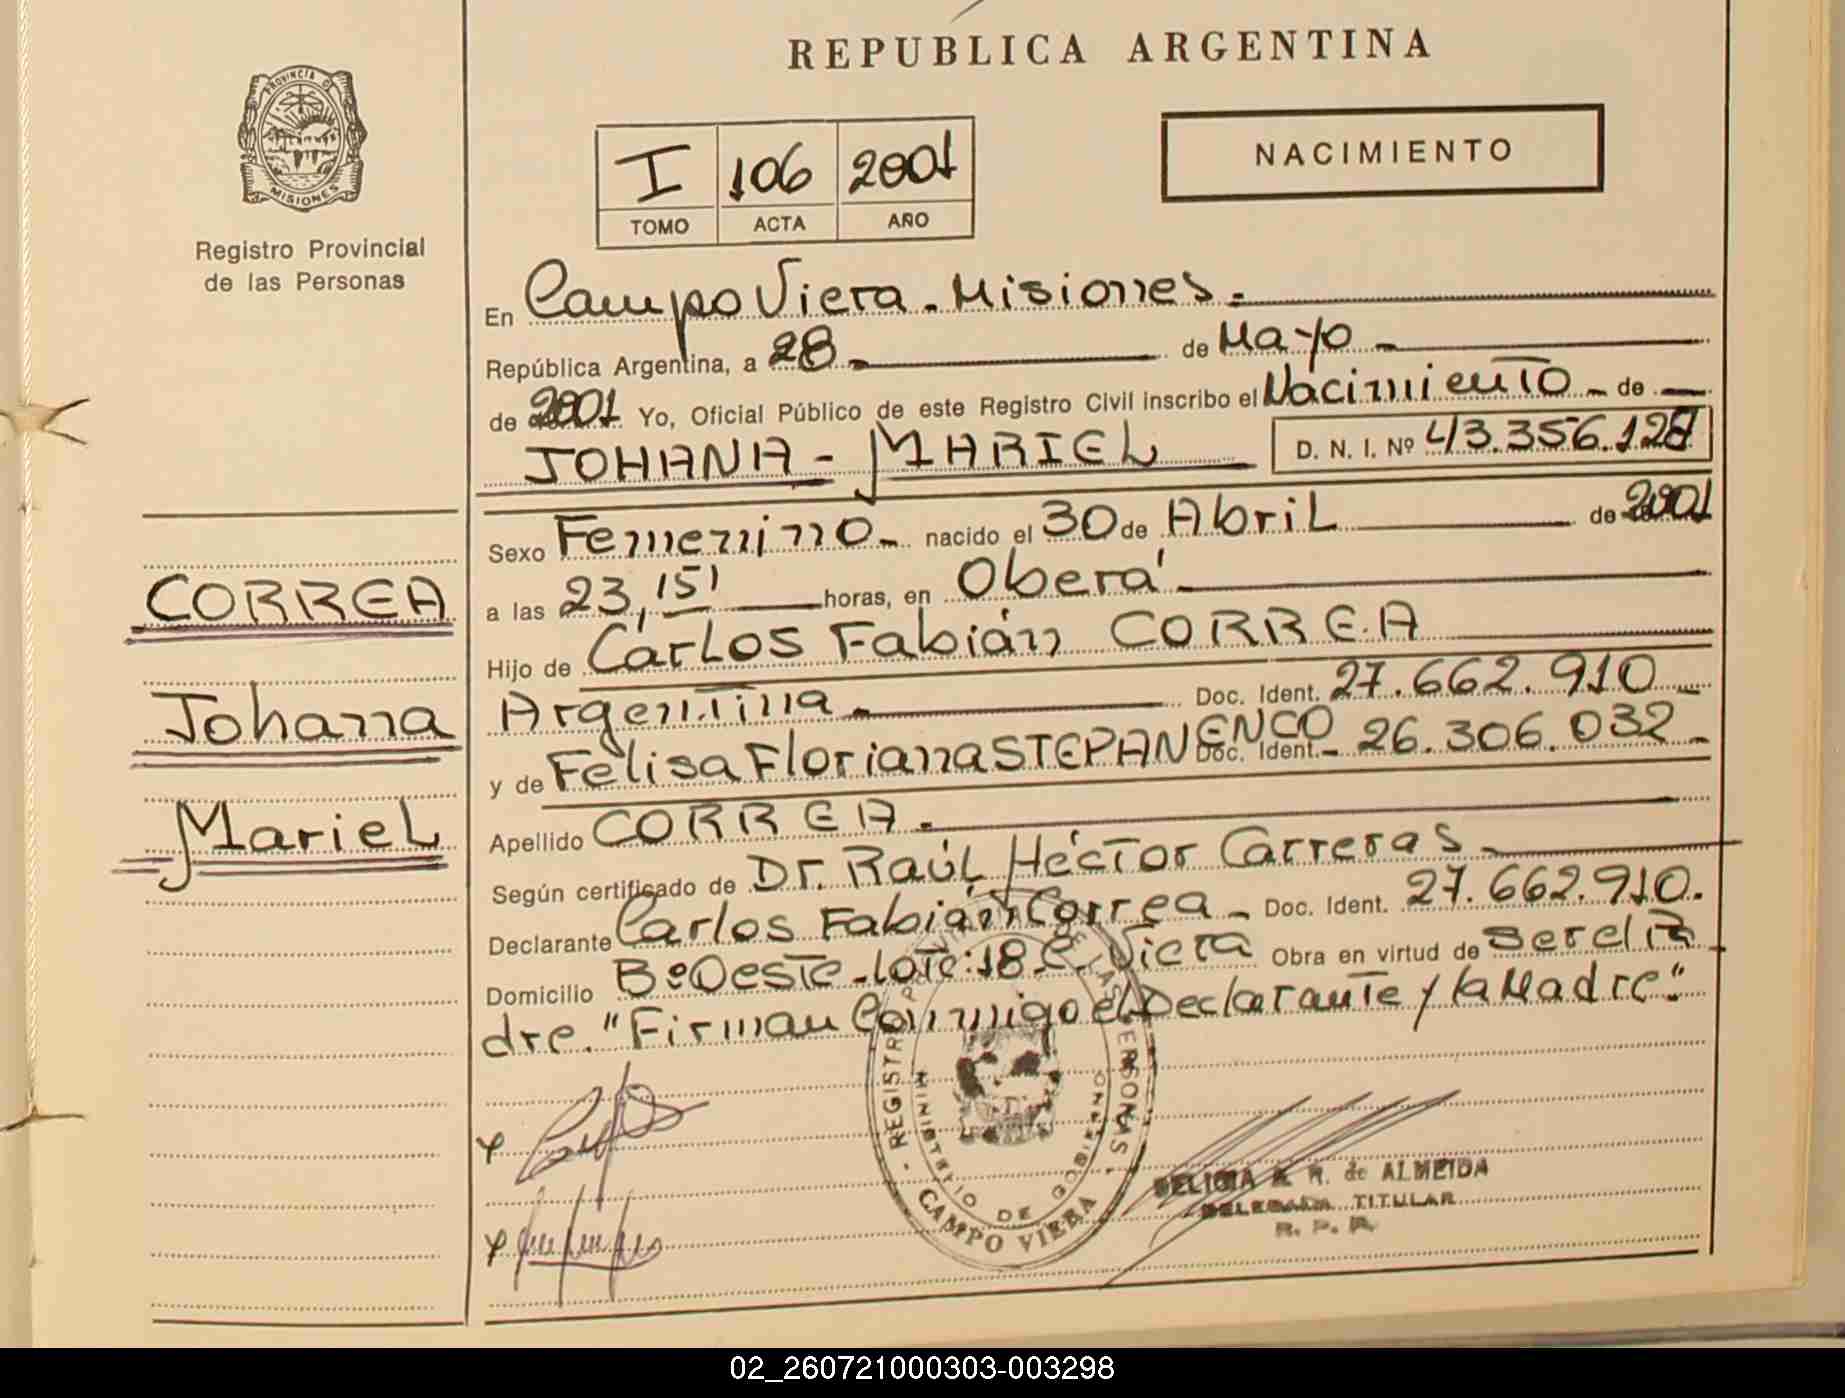 REPUBLICA ARGENTINA
PROVINCIA DE MISIONES
Registro Provincial
de las Personas
I 106 2001
TOMO ACTA AÑO
NACIMIENTO
En Campo Viera - Misiones.-
República Argentina, a 28 - de Mayo -
de 2001 Yo, Oficial Público de este Registro Civil inscribo el Nacimiento - de -
JOHANA - MARIEL D. N. I. Nº 43.356.128
Sexo Femenino - nacido el 30 de Abril de 2001
a las 23,15' horas, en Oberá -
Hijo de Carlos Fabián CORREA
Argentina - Doc. Ident. 27.662.910 -
y de Felisa Floriana STEPANENCO Doc. Ident. - 26.306.032 -
Apellido CORREA.-
Según certificado de Dr. Raúl Héctor Carreras -
Declarante Carlos Fabián Correa - Doc. Ident. 27.662.910.
Domicilio Bº Oeste - Lote: 18 - C. Viera Obra en virtud de ser el Pa
dre. "Firman Conmigo el Declarante y la Madre".
CORREA
Johana
Mariel
REGISTRO PROVINCIAL DE LAS PERSONAS
MINISTERIO DE GOBIERNO
CAMPO VIERA
R. de ALMEIDA
DELEGADA TITULAR
R. P. P.
02_260721000303-003298